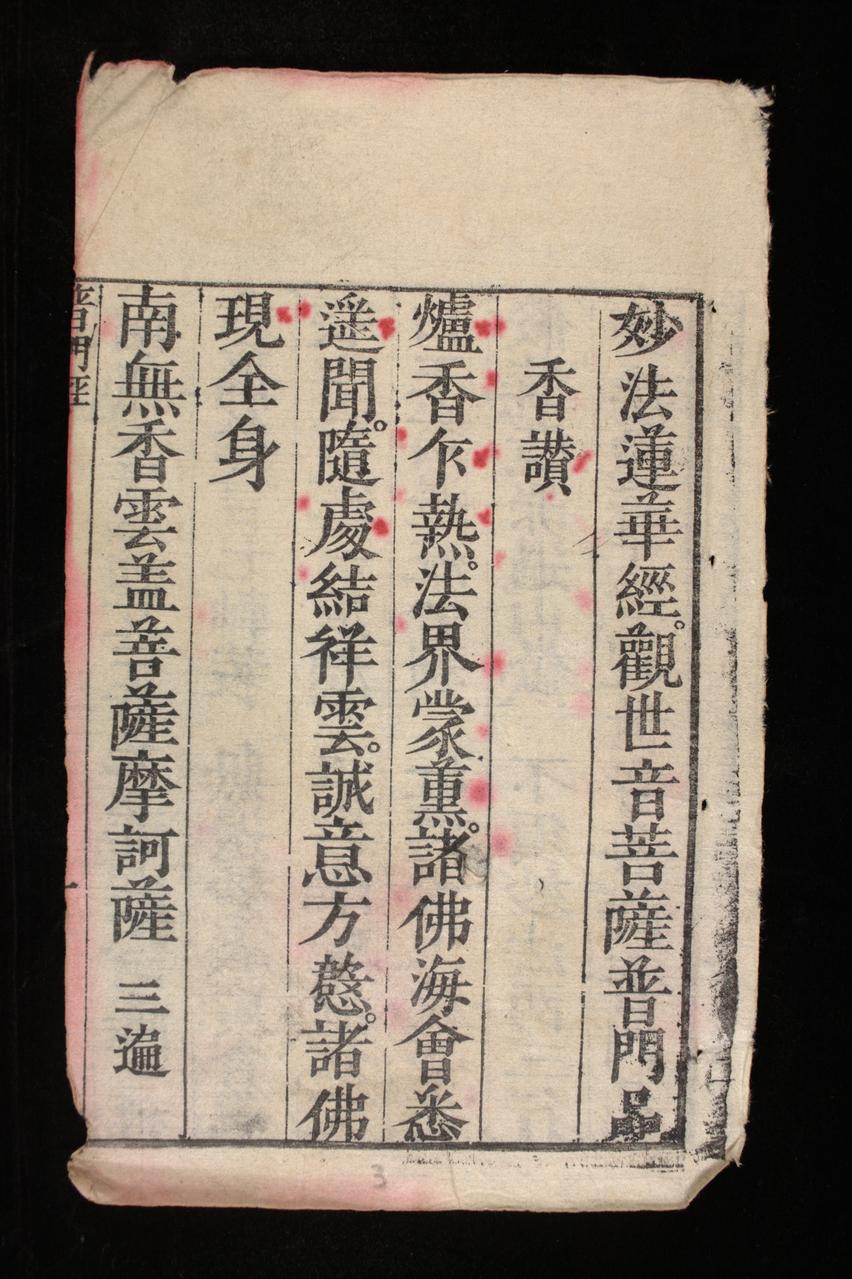 妙法蓮華經。觀世音菩薩普門品
香讚
爐香乍熱。法界蒙熏。諸佛海會悉
遥聞。隨處結祥雲。誠意方慇。諸佛
現全身
南無香雲盖菩薩摩訶薩 三遍
普門經
3